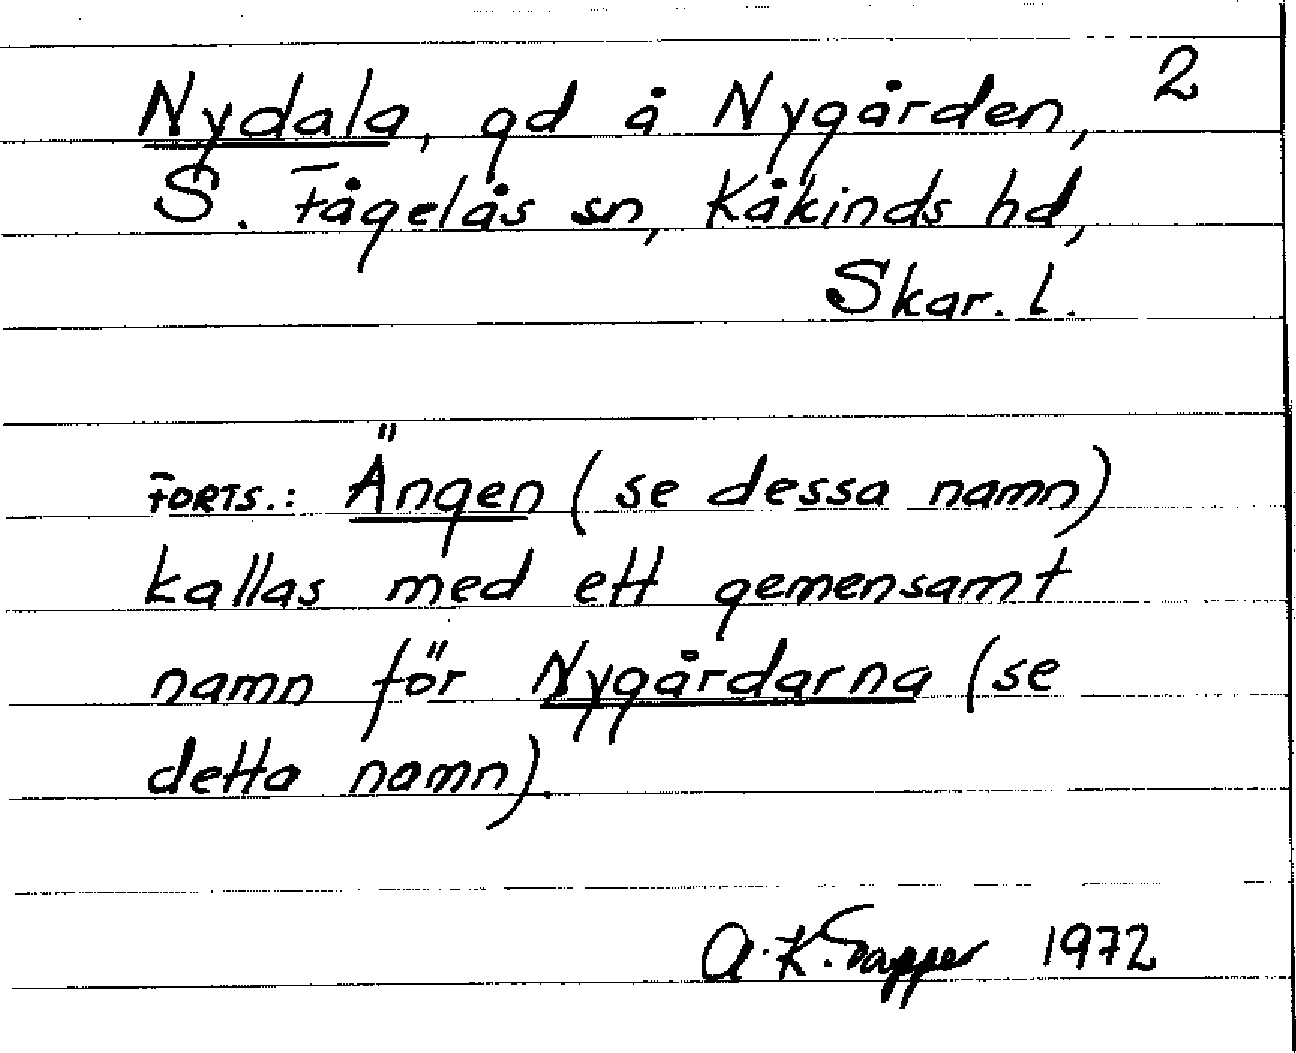 Nydala, gd å Nygården, 2
S. Fågelås sn, Kåkinds hd,
Skar. l.
FORTS.: Ängen (se dessa namn)
kallas med ett gemensamt
namn för Nygårdarna (se
detta namn).
A. K. 1972